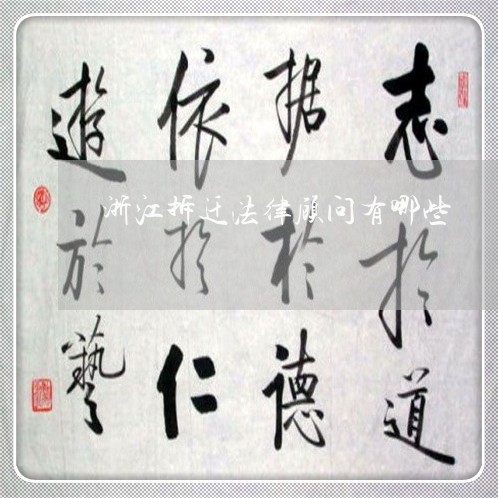 志於道
据於德
依於仁
遊於藝
浙江拆迁法律顾问有哪些